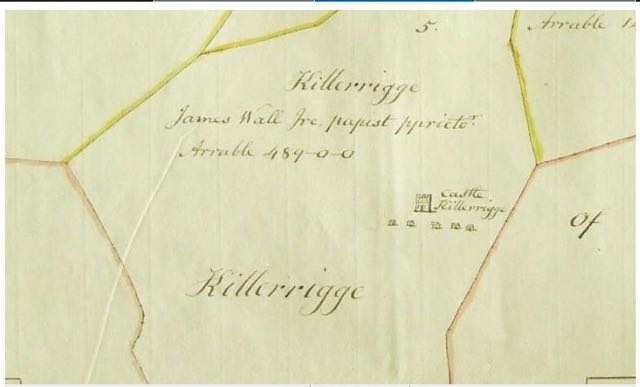 5.
Arrable 1
Killerrigge
James Wall Ire. papist pprietor.
Arrable 489-0-0
Castle
Killerrigge
Of
Killerrigge